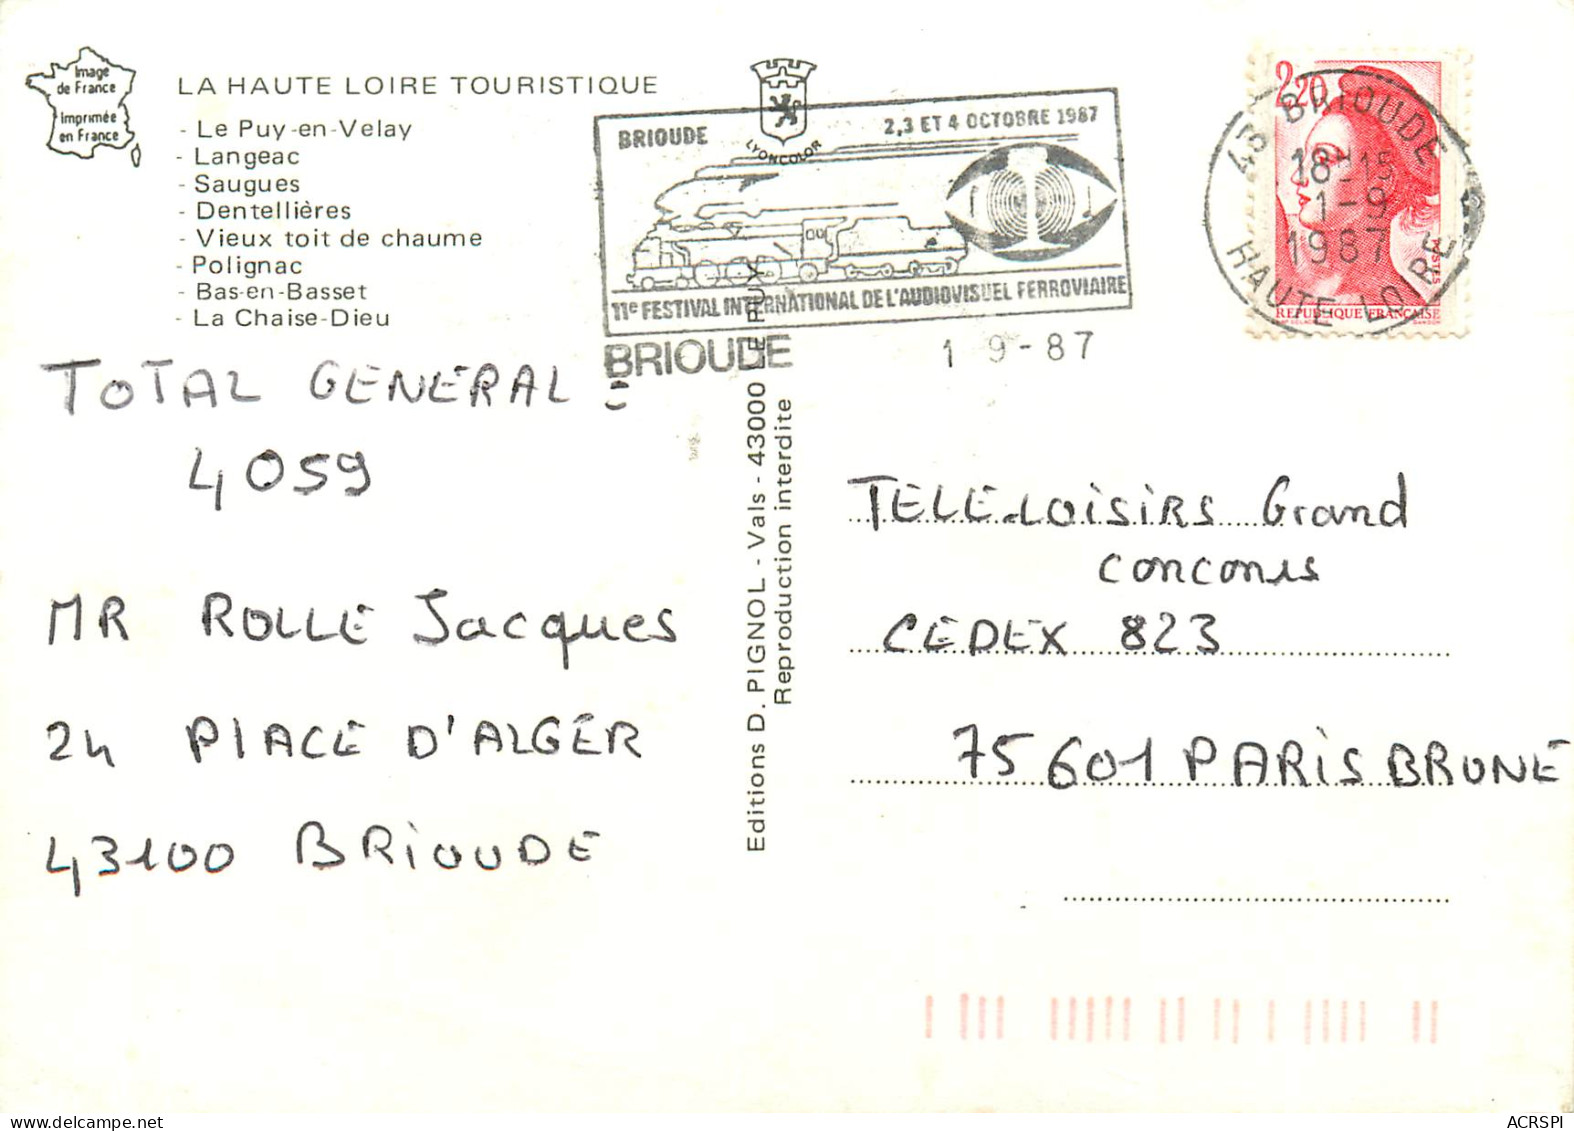 Image
de France
Imprimée
en France
LA HAUTE LOIRE TOURISTIQUE
- Le Puy-en-Velay
- Langeac
- Saugues
- Dentellières
- Vieux toit de chaume
- Polignac
- Bas-en-Basset
- La Chaise-Dieu
LYONCOLOR
BRIOUDE
2,3 ET 4 OCTOBRE 1987
11e FESTIVAL INTERNATIONAL DE L'AUDIOVISUEL FERROVIAIRE
BRIOUDE
1 9-87
2,20
43 BRIOUDE
18H15
1-9
1987
HAUTE LOIRE
POSTES
REPUBLIQUE FRANÇAISE
TOTAL GENERAL :
4059
MR ROLLE Jacques
24 PLACE D'ALGER
43100 BRIOUDE
Editions D. PIGNOL - Vals - 43000 LE PUY
Reproduction interdite
TELE-LOISIRS Grand
concours
CEDEX 823
75601 PARIS BRUNE
ACRSPI